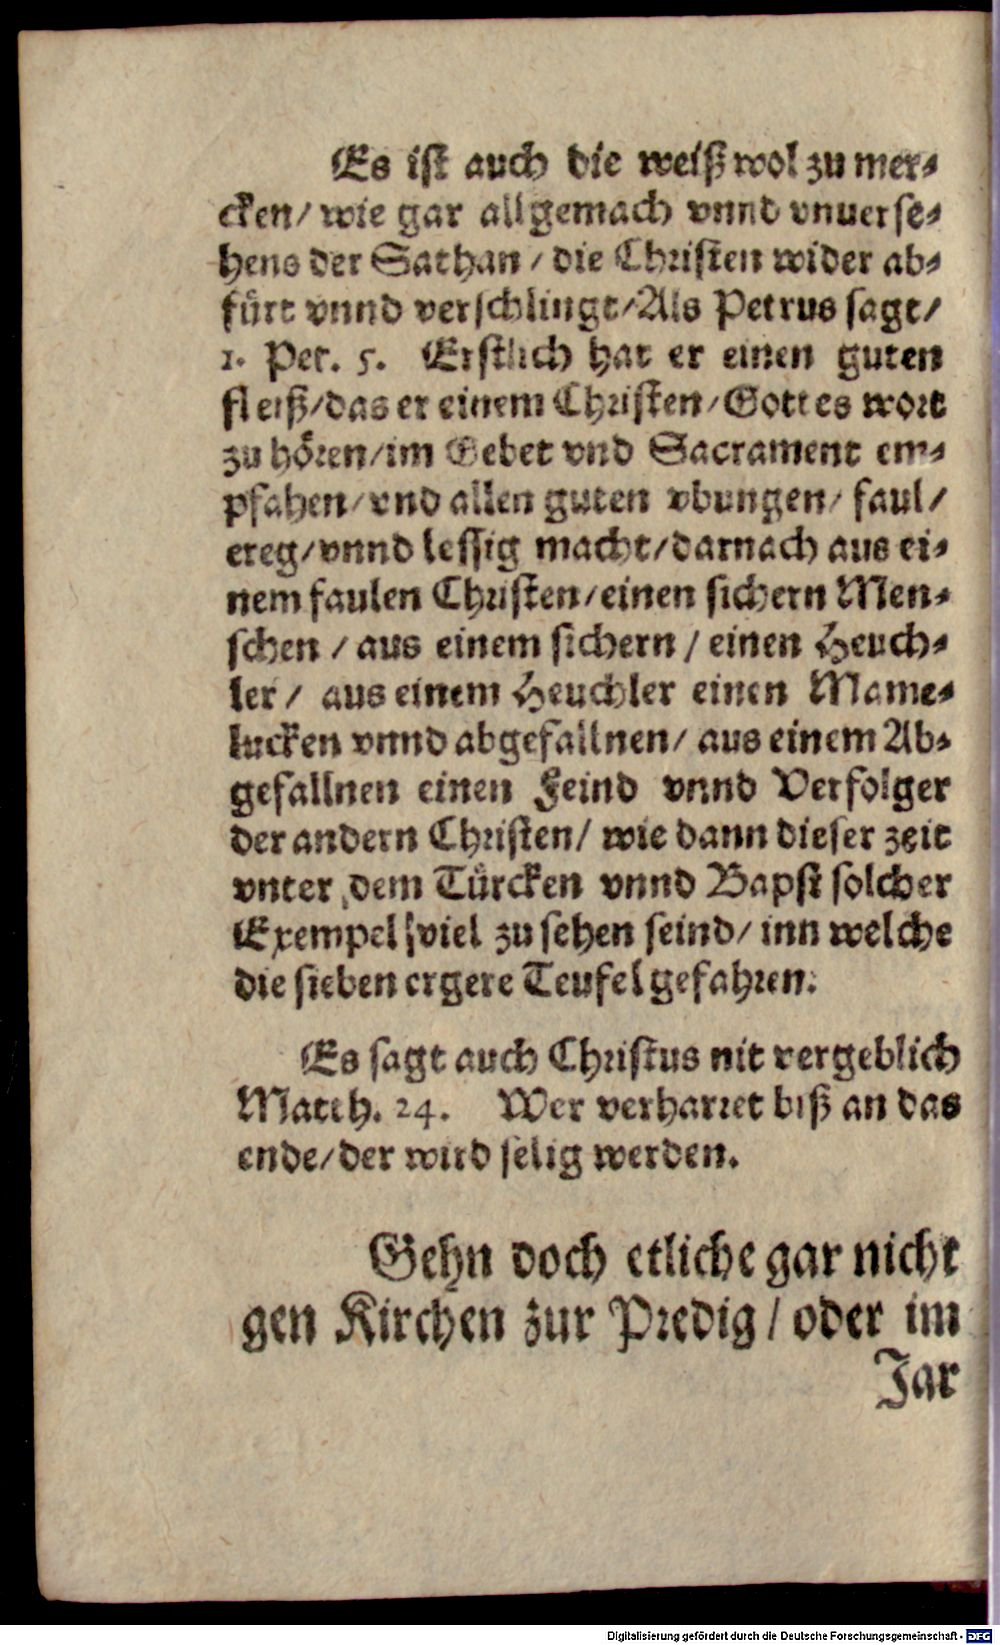 Es ist auch die weiß wol zu mer-
cken/ wie gar allgemach vnnd vnuerse-
hens der Sathan / die Christen wider ab-
fürt vnnd verschlingt/Als Petrus sagt/
1. Pet. 5. Erstlich hat er einen guten
fleiß/das er einem Christen/Gottes wort
zu hören/im Gebet vnd Sacrament em-
pfahen/vnd allen guten vbungen/ faul/
treg/vnnd lessig macht/darnach aus ei-
nem faulen Christen/einen sichern Men-
schen / aus einem sichern / einen Heuch-
ler / aus einem Heuchler einen Mame-
lucken vnnd abgefallnen/ aus einem Ab-
gefallnen einen Feind vnnd Verfolger
der andern Christen/ wie dann dieser zeit
vnter dem Türcken vnnd Bapst solcher
Exempel viel zu sehen seind/ inn welche
die sieben ergere Teufel gefahren.
Es sagt auch Christus nit vergeblich
Matth. 24. Wer verharret biß an das
ende/der wird selig werden.
Gehn doch etliche gar nicht
gen Kirchen zur Predig / oder im
Jar
Digitalisierung gefördert durch die Deutsche Forschungsgemeinschaft - DFG